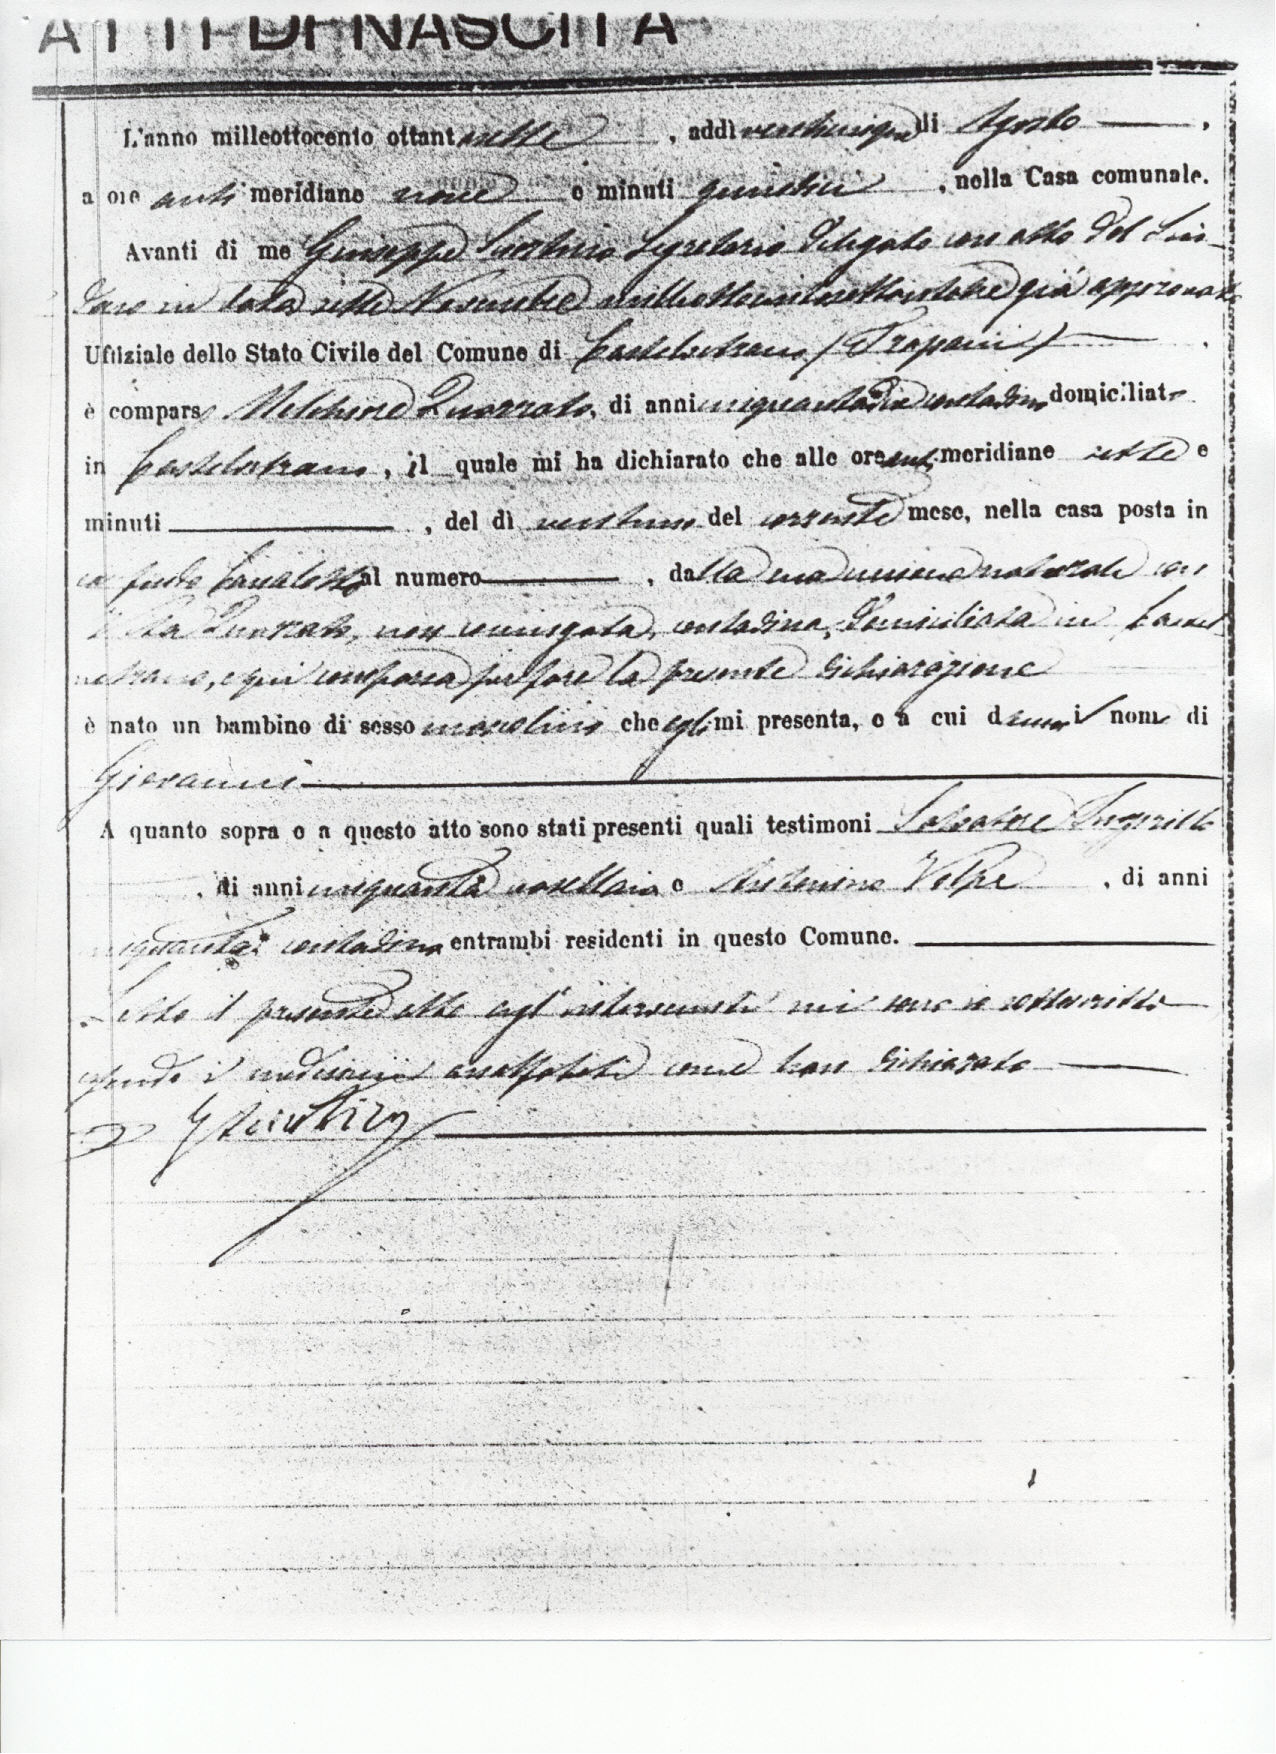 ATTI DI NASCITA
L'anno milleottocento ottantasette, addì venticinque di Agosto,
a ore anti meridiane nove e minuti quindici, nella Casa comunale.
Avanti di me Giuseppe Segretario Delegato con atto del Sin-
daco in data sette Novembre milleottocentosettantotto già approvato
Uffiziale dello Stato Civile del Comune di Castelvetrano (Trapani)
è comparso Melchiorre Quozzato, di anni contadino domiciliato
in Castelvetrano, il quale mi ha dichiarato che alle ore anti meridiane sette e
minuti, del dì ventuno del corrente mese, nella casa posta in
al numero, dalla sua unione naturale con
non coniugata, contadina, domiciliata in Castel-
vetrano, e qui comparsa per fare la presente dichiarazione
è nato un bambino di sesso mascolino che egli mi presenta, e a cui danno i nome di
Giovanni
A quanto sopra e a questo atto sono stati presenti quali testimoni Salvatore
, di anni cinquanta e Antonino Volpe, di anni
cinquanta contadino entrambi residenti in questo Comune.
Letto il presente atto agl'intervenuti mi sono io sottoscritto
essendo i medesimi analfabeti come han dichiarato